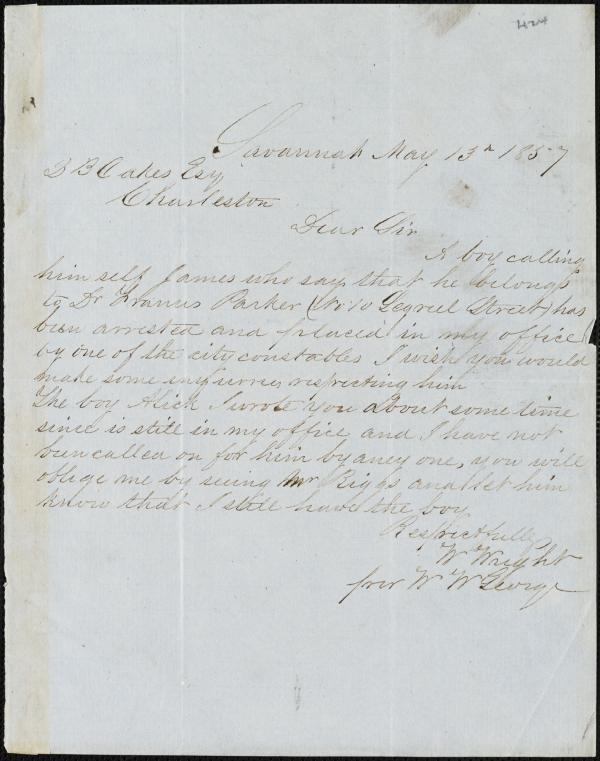 424
Savannah May 13th 1857
Z B Oakes Esq
Charleston
Dear Sir
A boy calling
him self James who says that he belongs
to Dr Francis Parker (No 10 Legreel Street) has
been arrested and placed in my office
by one of the city constables I wish you would
make some enquiries respecting him
The boy Alick I wrote you about some time
since is still in my office and I have not
been called on for him by aney one, you will
oblige me by seeing Mr Riggs and let him
know that I still have the boy
Respectfully
W Wright
per W W George